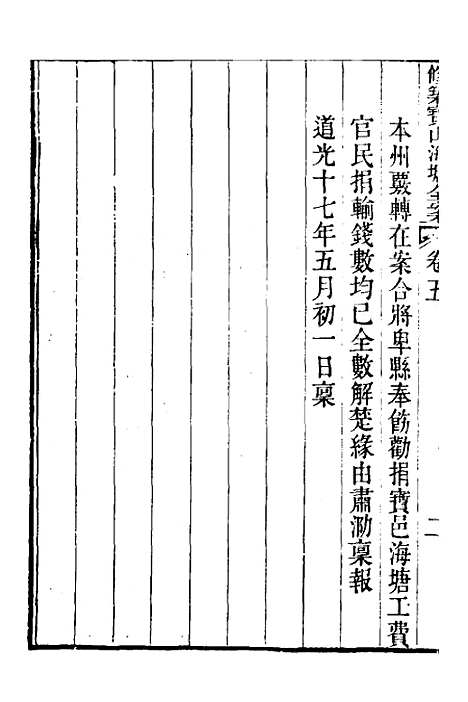 修築寶山海塘全案 卷五 二
本州覈轉在案合將卑縣奉飭勸捐寶邑海塘工費
官民捐輸錢數均已全數解楚緣由肅泐稟報
道光十七年五月初一日稟